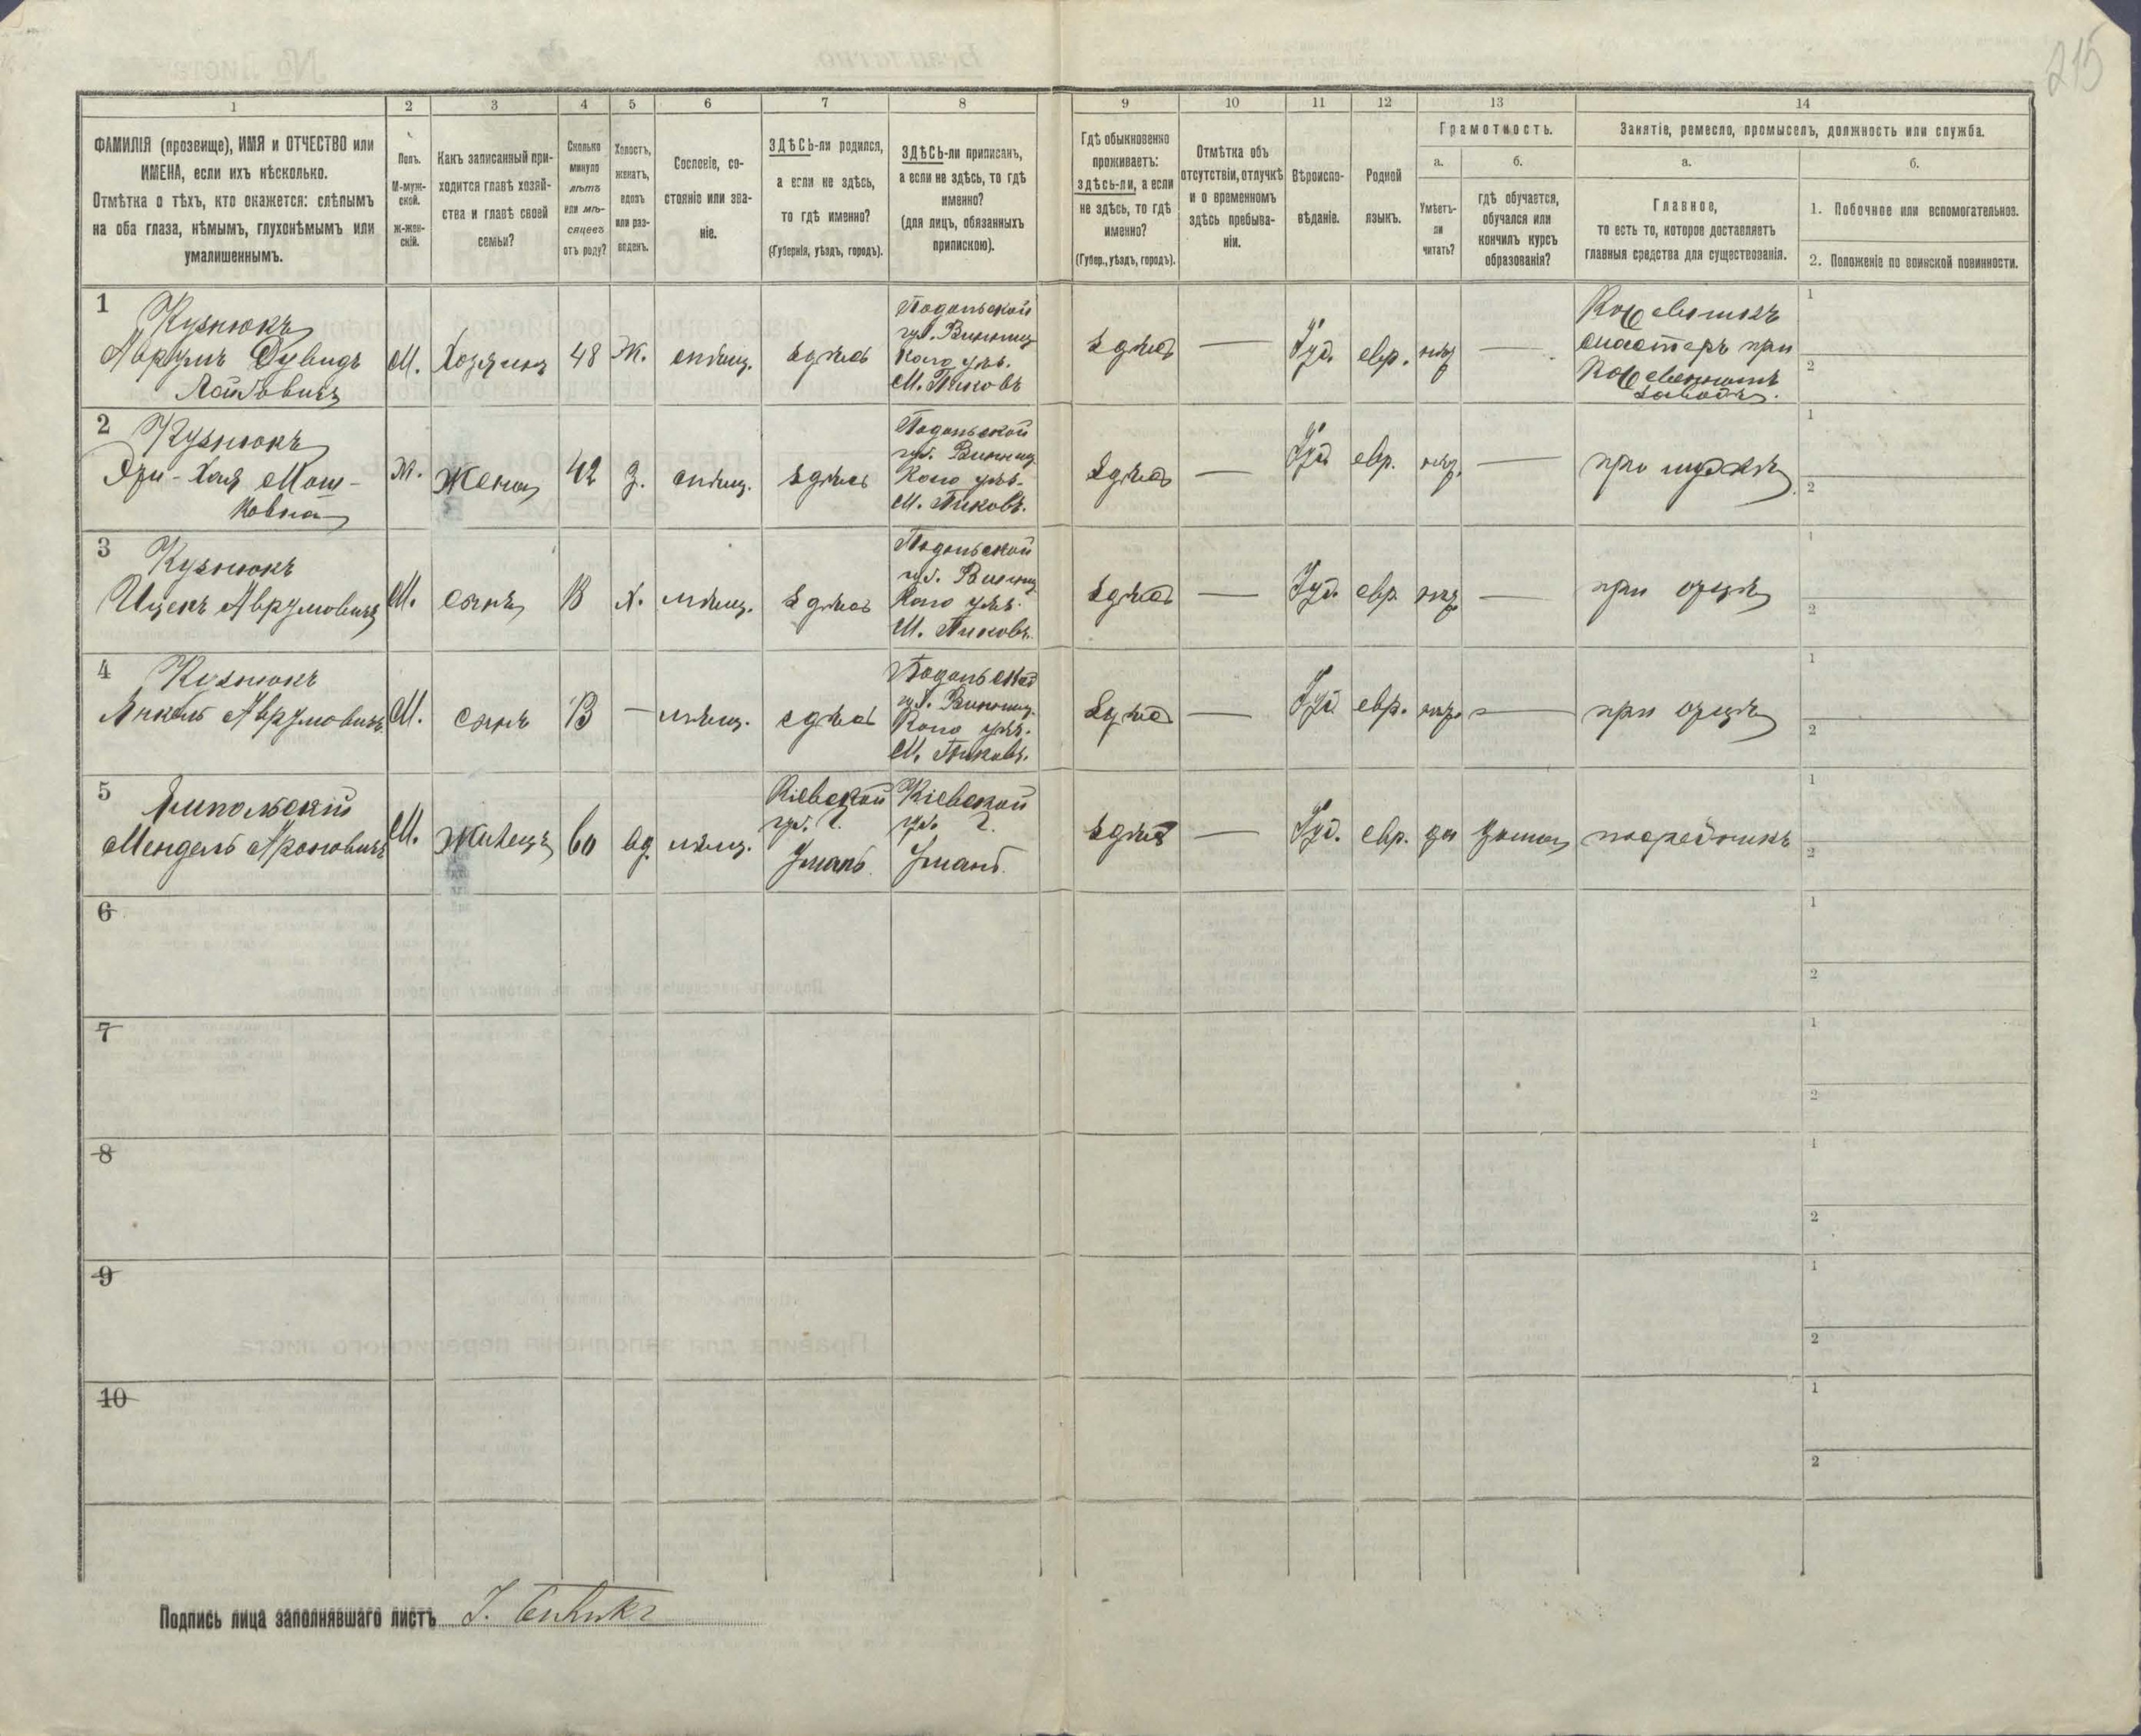 215
1 2 3 4 5 6 7 8 9 10 11 12 13 14
ФАМИЛІЯ (прозвище), ИМЯ и ОТЧЕСТВО или
ИМЕНА, если ихъ нѣсколько.
Отмѣтка о тѣхъ, кто окажется: слѣпымъ
на оба глаза, нѣмымъ, глухонѣмымъ или
умалишеннымъ.
Полъ.
М-муж-
ской.
Ж-жен-
скій.
Какъ записанный при-
ходится главѣ хозяй-
ства и главѣ своей
семьи?
Сколько
минуло
лѣтъ
или мѣ-
сяцевъ
отъ роду?
Холостъ,
женатъ,
вдовъ
или раз-
веденъ.
Сословіе, со-
стояніе или зва-
ніе.
ЗДѢСЬ-ли родился,
а если не здѣсь,
то гдѣ именно?
(Губернія, уѣздъ, городъ).
ЗДѢСЬ-ли приписанъ,
а если не здѣсь, то гдѣ
именно?
(для лицъ, обязанныхъ
припискою).
Гдѣ обыкновенно
проживаетъ:
здѣсь-ли, а если
не здѣсь, то гдѣ
именно?
(Губер., уѣздъ, городъ).
Отмѣтка объ
отсутствіи, отлучкѣ
и о временномъ
здѣсь пребыва-
ніи.
Вѣроиспо-
вѣданіе.
Родной
языкъ.
Грамотность.
а.
Умѣетъ-
ли
читать?
б.
гдѣ обучается,
обучался или
кончилъ курсъ
образованія?
Занятіе, ремесло, промыселъ, должность или служба.
а.
Главное,
то есть то, которое доставляетъ
главныя средства для существованія.
б.
1. Побочное или вспомогательное.
2. Положеніе по воинской повинности.
1
Кузнюкъ
Аврумъ Дувидъ
М. Хозяинъ 48 Ж. мѣщ. здѣсь
Подольской
губ. Винниц
кого уѣз.
М. Пиковъ
здѣсь — Іуд. евр. нѣт —
мастеръ при
заводѣ.
1
2
2
Кузнюкъ
Хая Мош-
ковна
Ж. жена 42 З. мѣщ. здѣсь
Подольской
губ. Винниц
кого уѣз.
М. Пиковъ.
здѣсь — Іуд евр. нѣт. — при мужѣ
1
2
3
Кузнюкъ
Ицекъ Аврумовичъ
М. сынъ Х. мѣщ. здѣсь
Подольской
губ. Винниц
кого уѣз.
М. Пиковъ.
здѣсь — Іуд. евр нѣт — при отцѣ
1
2
4
Кузнюкъ
Янкель Аврумовичъ
М. сынъ 13 — мѣщ. здѣсь
Подольской
губ. Винниц.
кого уѣз.
М. Пиковъ.
здѣсь — Іуд евр. нѣт. — при отцѣ
1
2
5
Ямпольскій
Мендель Ароновичъ
М. Жилецъ 60 вд. мѣщ.
Кіевской
губ. г.
Умань.
Кіевской
губ. г.
Умань.
здѣсь — Іуд. евр. да дома посредникъ
1
2
6
1
2
7
1
2
8
1
2
9
1
2
10
1
2
Подпись лица заполнявшаго листъ